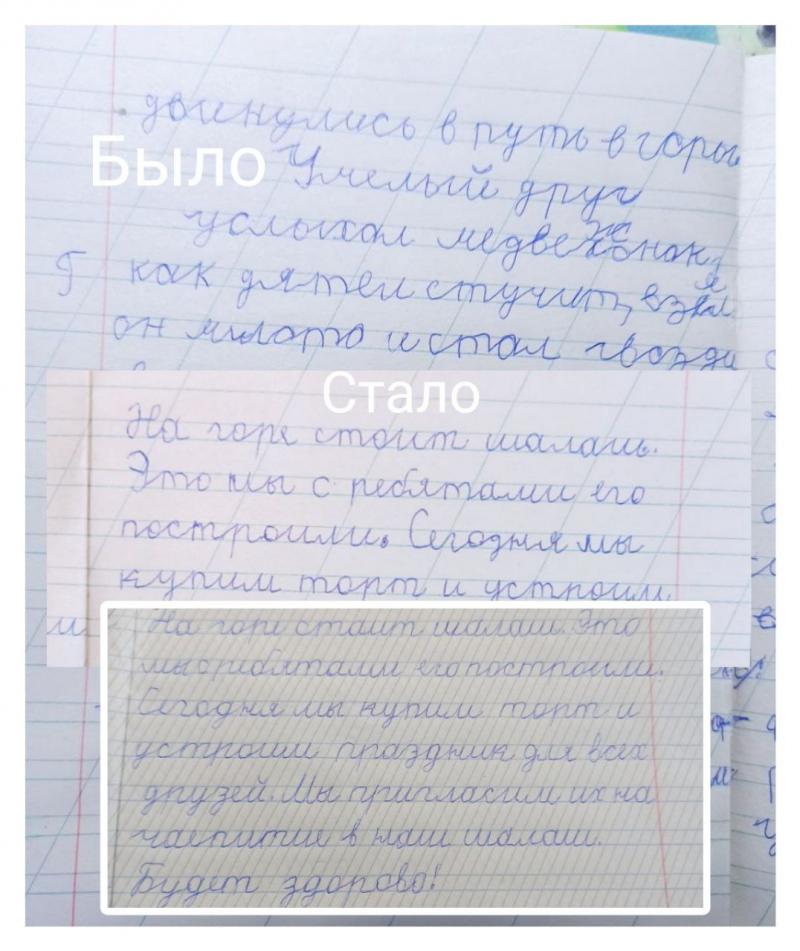 двинулись в путь в горы.
Было
Умелый друг
услыхал медвежонок,
как дятел стучит, взял
он молото и стал гвозди
Стало
На горе стоит шалашь.
Это мы с ребятами его
построили. Сегодня мы
купим торт и устроим
На горе стаит шалаш. Это
мы с ребятами его построили.
Сегодня мы купим торт и
устроим праздник для всех
друзей. Мы пригласим их на
чаепитие в наш шалаш.
Будет здорово!